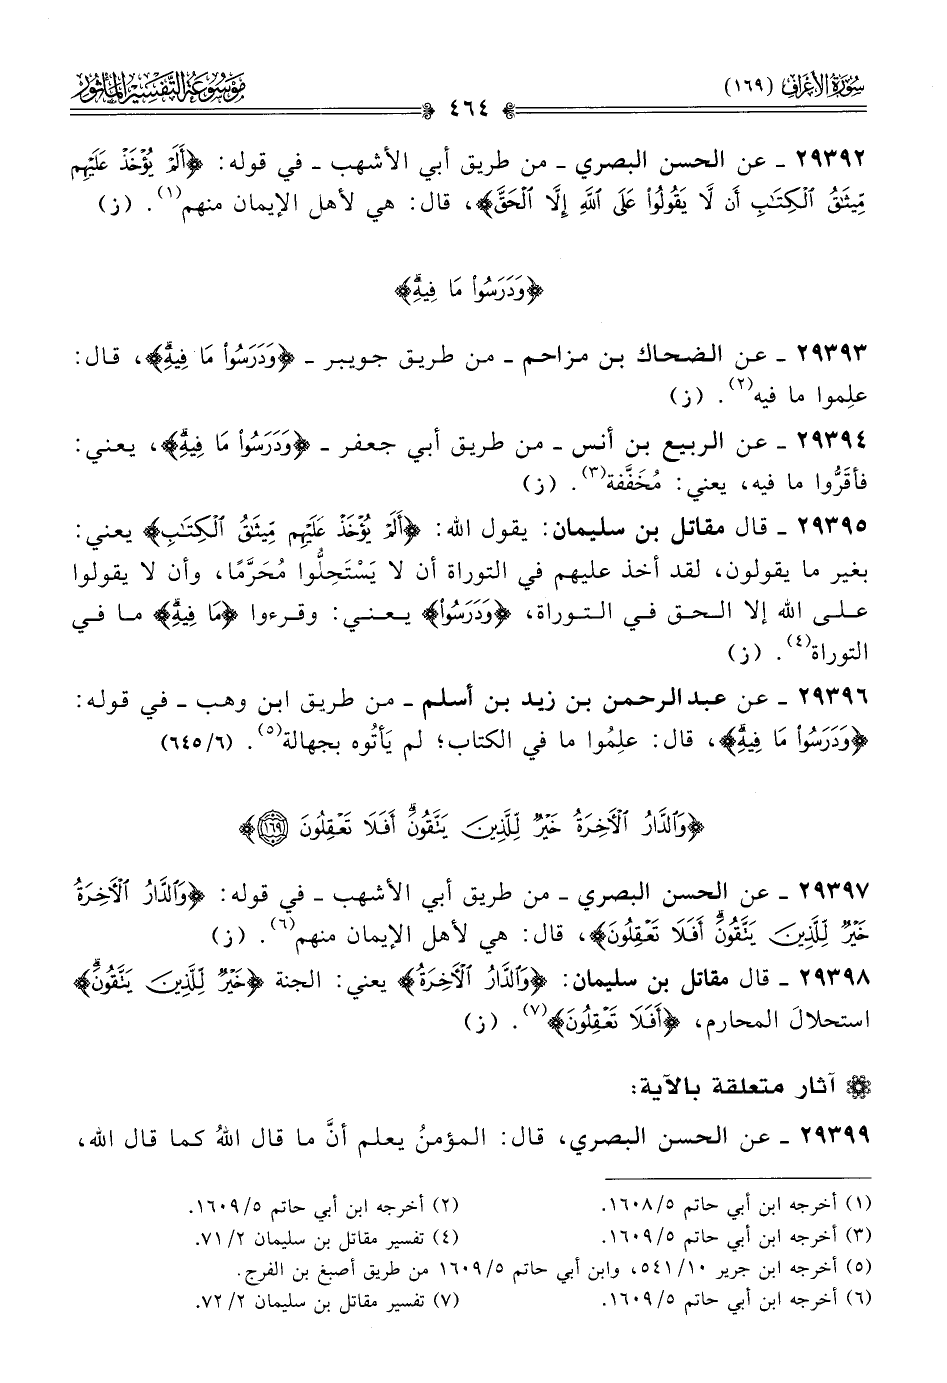 سُورَةُ الأَعْرَافِ (١٦٩)
٤٦٤
مَوْسُوعَةُ التَّفْسِيرِ المَأْثُور
٢٩٣٩٢ ـ عن الحسن البصري ـ من طريق أبي الأشهب ـ في قوله: ﴿أَلَمْ يُؤْخَذْ عَلَيْهِم
مِّيثَٰقُ ٱلْكِتَٰبِ أَن لَّا يَقُولُوا۟ عَلَى ٱللَّهِ إِلَّا ٱلْحَقَّ﴾، قال: هي لأهل الإيمان منهم(١). (ز)
﴿وَدَرَسُوا۟ مَا فِيهِۗ﴾
٢٩٣٩٣ ـ عن الضحاك بن مزاحم ـ من طريق جويبر ـ ﴿وَدَرَسُوا۟ مَا فِيهِۗ﴾، قال:
علِموا ما فيه(٢). (ز)
٢٩٣٩٤ ـ عن الربيع بن أنس ـ من طريق أبي جعفر ـ ﴿وَدَرَسُوا۟ مَا فِيهِۗ﴾، يعني:
فأقَرُّوا ما فيه، يعني: مُخَفَّفة(٣). (ز)
٢٩٣٩٥ ـ قال مقاتل بن سليمان: يقول الله: ﴿أَلَمْ يُؤْخَذْ عَلَيْهِم مِّيثَٰقُ ٱلْكِتَٰبِ﴾ يعني:
بغير ما يقولون، لقد أخذ عليهم في التوراة أن لا يَسْتَحِلُّوا مُحَرَّمًا، وأن لا يقولوا
على الله إلا الحق في التوراة، ﴿وَدَرَسُوا۟﴾ يعني: وقرءوا ﴿مَا فِيهِۗ﴾ ما في
التوراة(٤). (ز)
٢٩٣٩٦ ـ عن عبدالرحمن بن زيد بن أسلم ـ من طريق ابن وهب ـ في قوله:
﴿وَدَرَسُوا۟ مَا فِيهِۗ﴾، قال: علِمُوا ما في الكتاب؛ لم يَأتُوه بجهالة(٥). (٦/ ٦٤٥)
﴿وَٱلدَّارُ ٱلْأَخِرَةُ خَيْرٌ لِّلَّذِينَ يَتَّقُونَۗ أَفَلَا تَعْقِلُونَ ١٦٩﴾
٢٩٣٩٧ ـ عن الحسن البصري ـ من طريق أبي الأشهب ـ في قوله: ﴿وَٱلدَّارُ ٱلْأَخِرَةُ
خَيْرٌ لِّلَّذِينَ يَتَّقُونَۗ أَفَلَا تَعْقِلُونَ﴾، قال: هي لأهل الإيمان منهم(٦). (ز)
٢٩٣٩٨ ـ قال مقاتل بن سليمان: ﴿وَٱلدَّارُ ٱلْأَخِرَةُ﴾ يعني: الجنة ﴿خَيْرٌ لِّلَّذِينَ يَتَّقُونَۗ﴾
استحلالَ المحارم، ﴿أَفَلَا تَعْقِلُونَ﴾(٧). (ز)
آثار متعلقة بالآية:
٢٩٣٩٩ ـ عن الحسن البصري، قال: المؤمنُ يعلم أنَّ ما قال اللهُ كما قال الله،
(١) أخرجه ابن أبي حاتم ٥/ ١٦٠٨. (٢) أخرجه ابن أبي حاتم ٥/ ١٦٠٩.
(٣) أخرجه ابن أبي حاتم ٥/ ١٦٠٩. (٤) تفسير مقاتل بن سليمان ٢/ ٧١.
(٥) أخرجه ابن جرير ١٠/ ٥٤١، وابن أبي حاتم ٥/ ١٦٠٩ من طريق أصبغ بن الفرج.
(٦) أخرجه ابن أبي حاتم ٥/ ١٦٠٩. (٧) تفسير مقاتل بن سليمان ٢/ ٧٢.